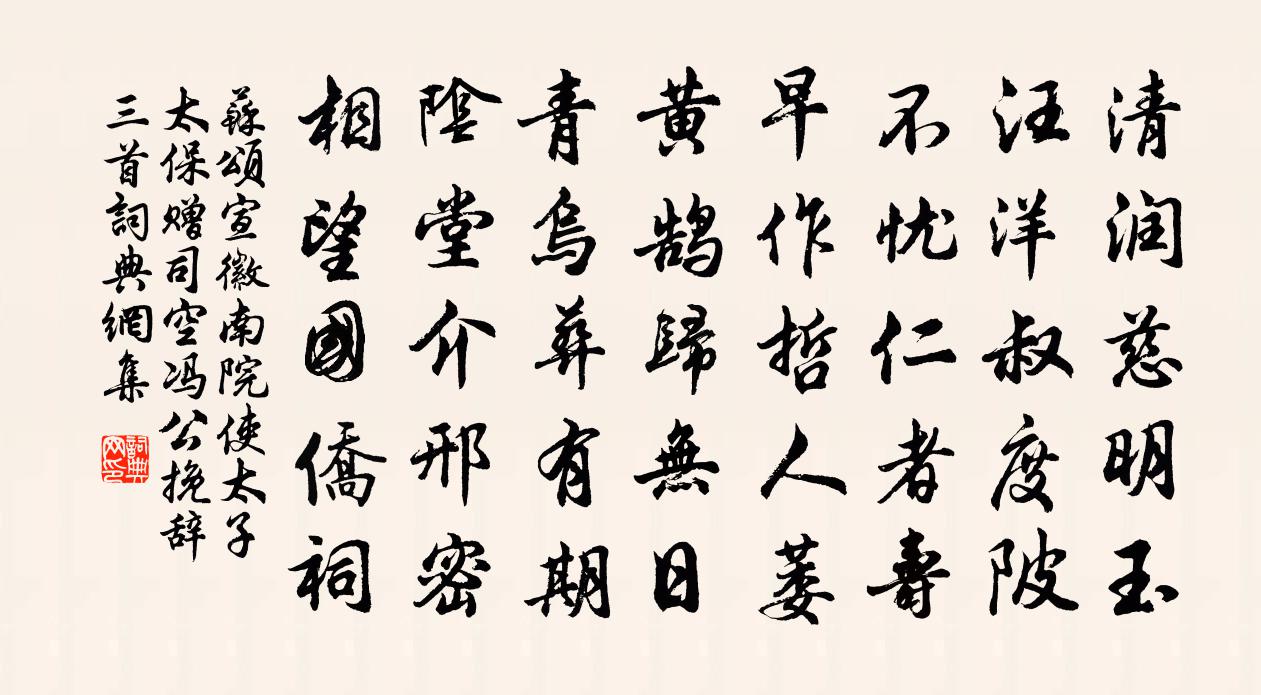 清润慈明玉
汪洋叔度陂
不忧仁者壽
早作哲人萎
黄鹄歸無日
青烏葬有期
陰堂介邢密
相望國僑祠
蘇頌宣徽南院使太子
太保赠司空冯公挽辞
三首詞典網集
詞典网印